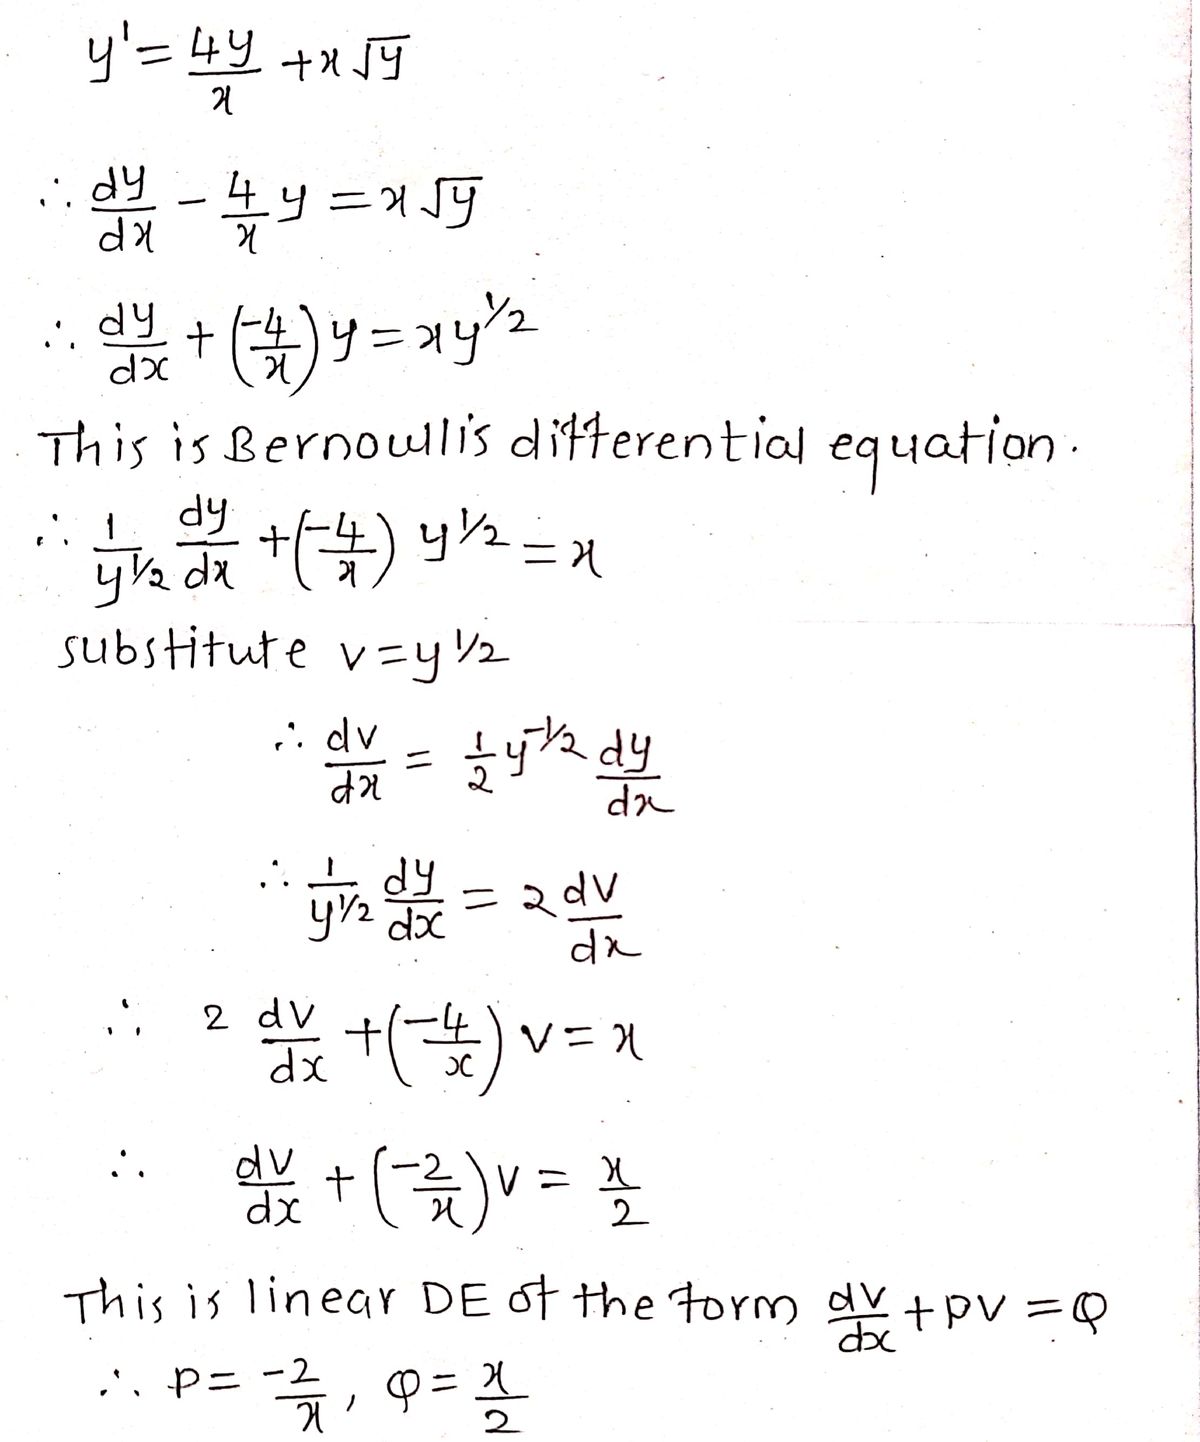 y' = 4y/x + x√y
∴ dy/dx - 4/x y = x√y
∴ dy/dx + (-4/x) y = xy^1/2
This is Bernowlli's differential equation.
∴ 1/y^1/2 dy/dx + (-4/x) y^1/2 = x
substitute v = y^1/2
∴ dv/dx = 1/2 y^-1/2 dy/dx
∴ 1/y^1/2 dy/dx = 2 dv/dx
∴ 2 dv/dx + (-4/x) v = x
∴ dv/dx + (-2/x) v = x/2
This is linear DE of the form dv/dx + pv = Q
∴ p = -2/x, Q = x/2